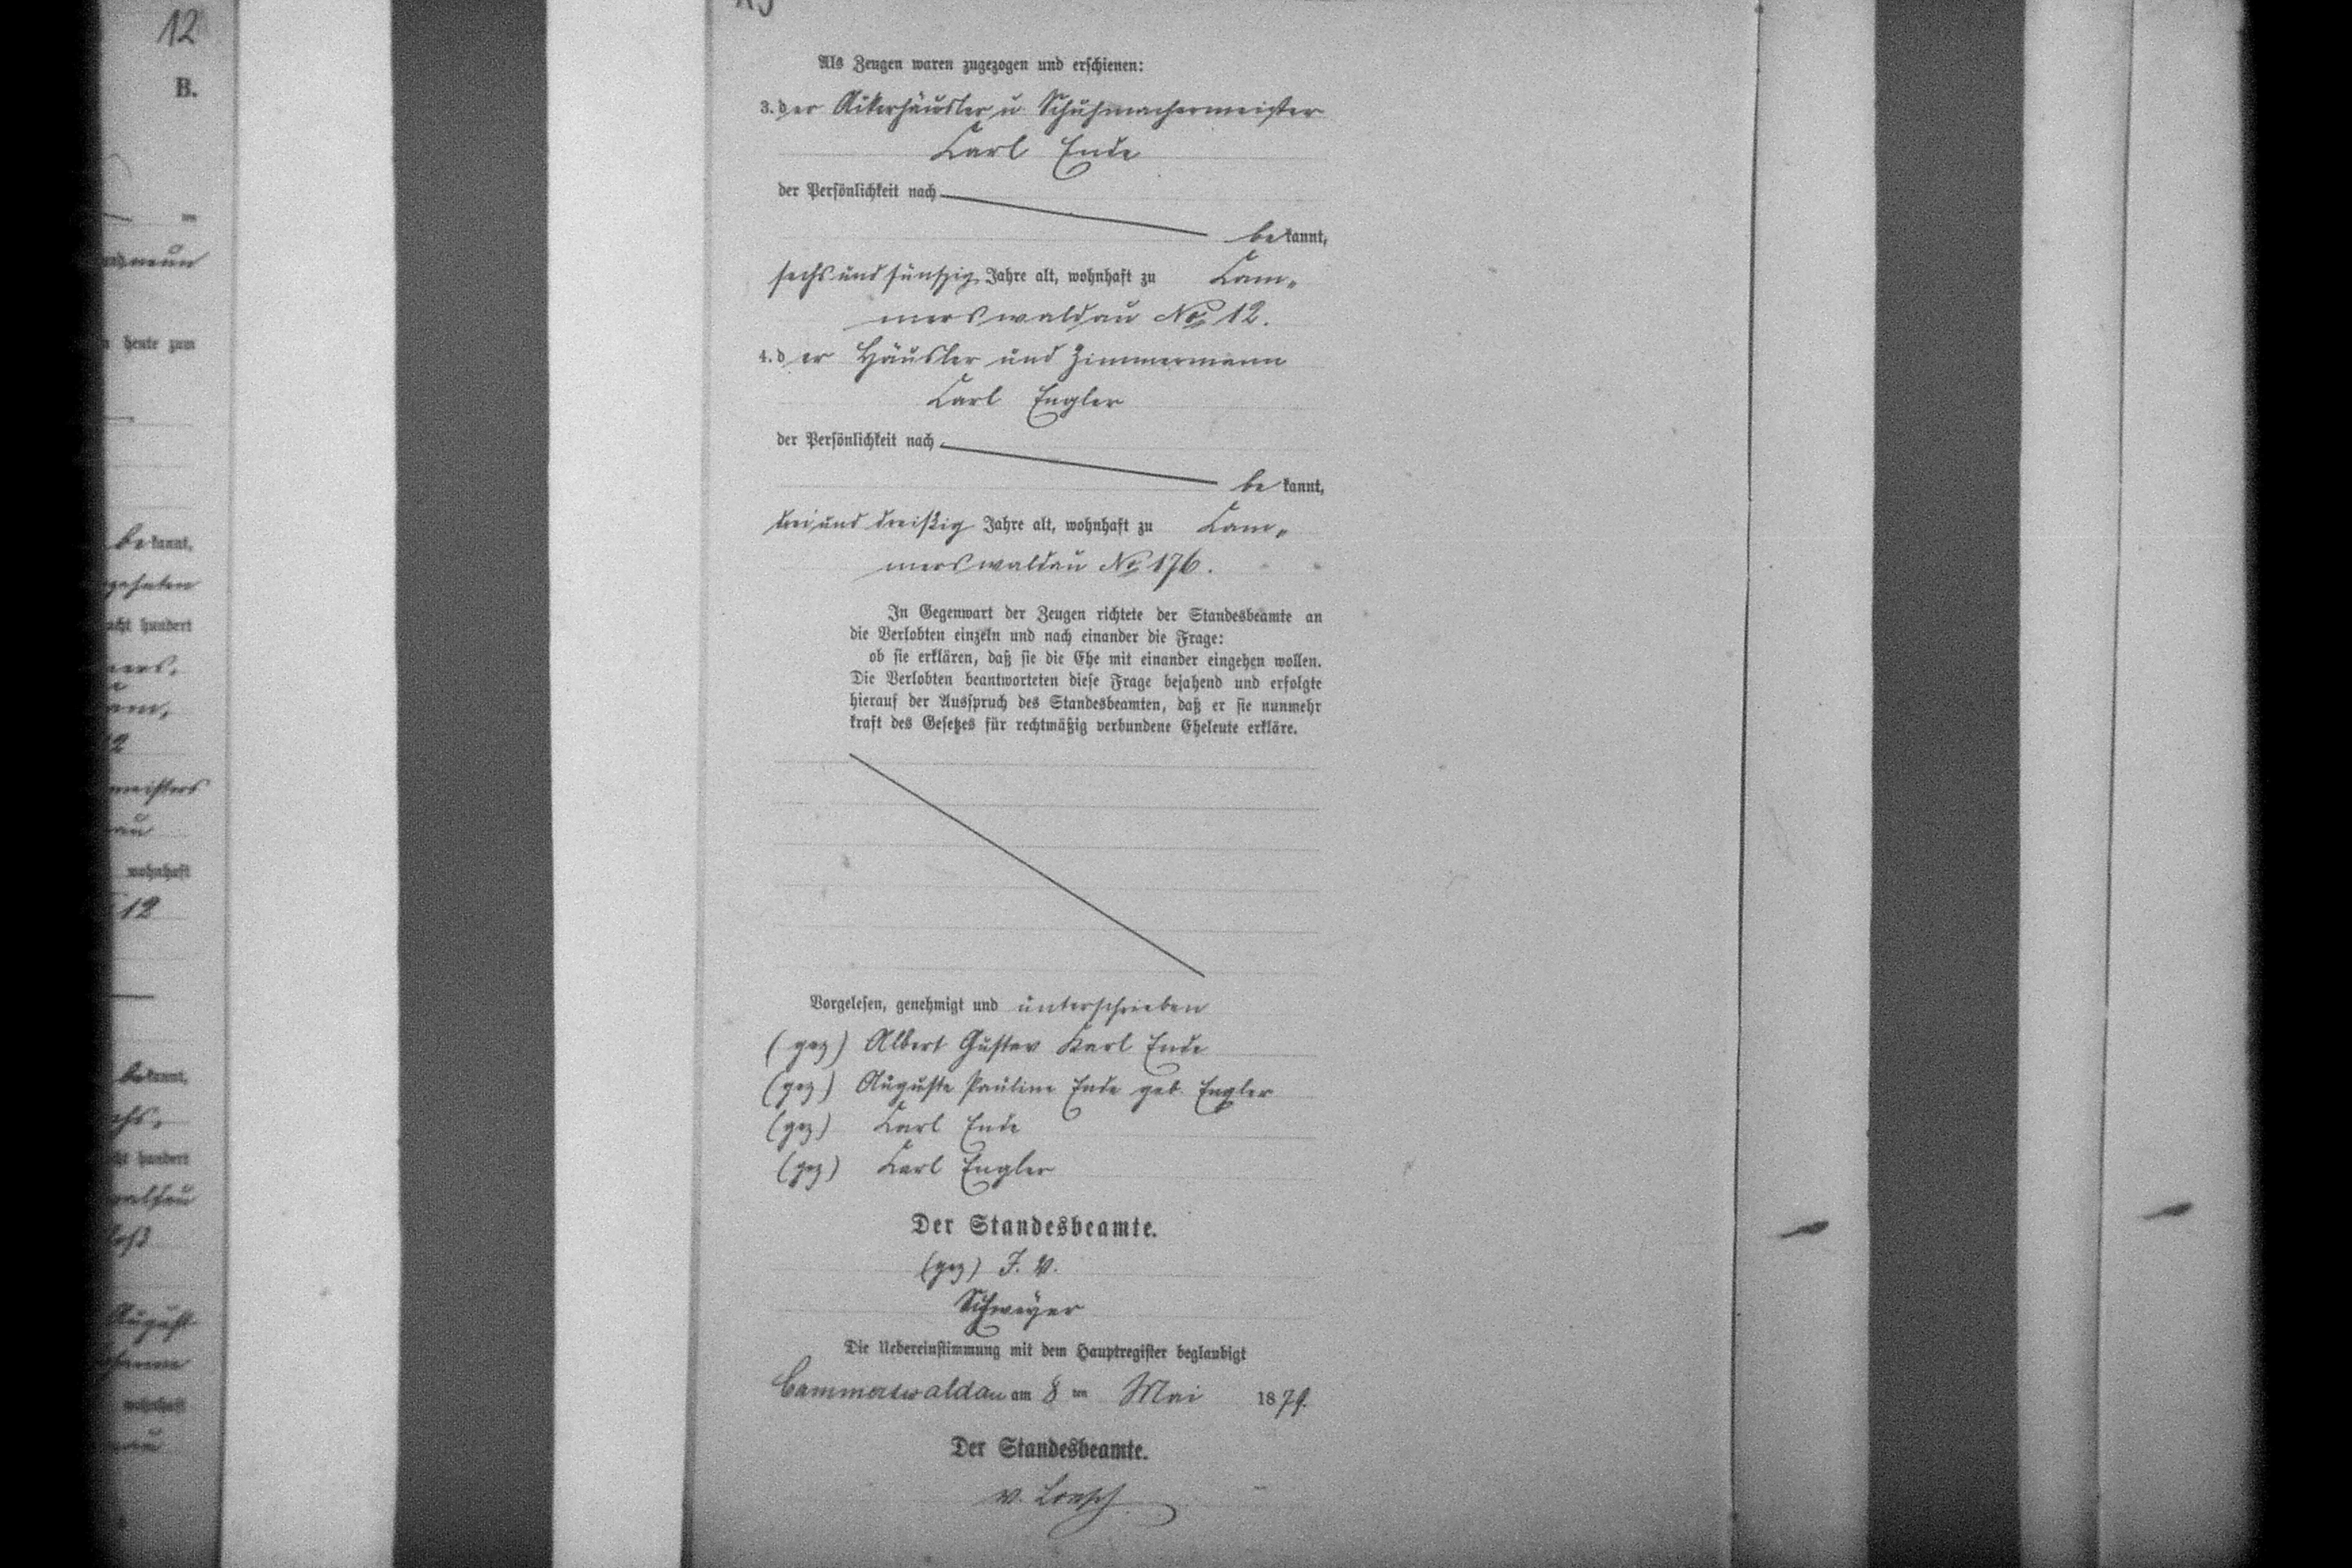 12
B.
neun
heute zum
bekannt,
acht hundert
12
meisters
au
wohnhaft
12
bekannt,
acht hundert
August
wohnhaft
Als Zeugen waren zugezogen und erschienen:
3. der Ackerhäusler u Schuhmachermeister
Carl Ende
der Persönlichkeit nach
bekannt,
sechs und fünfzig Jahre alt, wohnhaft zu Cam„
merswaldau No 12.
4. der Häusler und Zimmermann
Carl Engler
der Persönlichkeit nach
bekannt,
drei und dreißig Jahre alt, wohnhaft zu Cam„
merswaldau No 176.
In Gegenwart der Zeugen richtete der Standesbeamte an
die Verlobten einzeln und nach einander die Frage:
ob sie erklären, daß sie die Ehe mit einander eingehen wollen.
Die Verlobten beantworteten diese Frage bejahend und erfolgte
hierauf der Ausspruch des Standesbeamten, daß er sie nunmehr
kraft des Gesetzes für rechtmäßig verbundene Eheleute erkläre.
Vorgelesen, genehmigt und unterschrieben
(gez) Albert Gustav Karl Ende
(gez) Auguste Pauline Ende geb. Engler
(gez) Carl Ende
(gez) Carl Engler
Der Standesbeamte.
(gez) I. V.
Schweyer
Die Uebereinstimmung mit dem Hauptregister beglaubigt
Cammerswaldau am 8 ten Mai 1879.
Der Standesbeamte.
v. Loesch